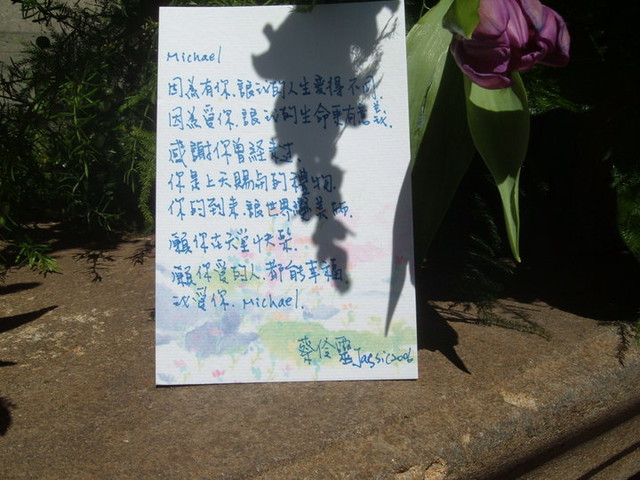 Michael
因為有你,讓我的人生變得不同.
因為愛你,讓我的生命更有意義.
感謝你曾經來過.
你是上天賜予的禮物.
你的到來讓世界變美麗.
願你在天堂快樂.
願你愛的人都能幸福.
我愛你. Michael.
蔡伶靈 Jassic2006